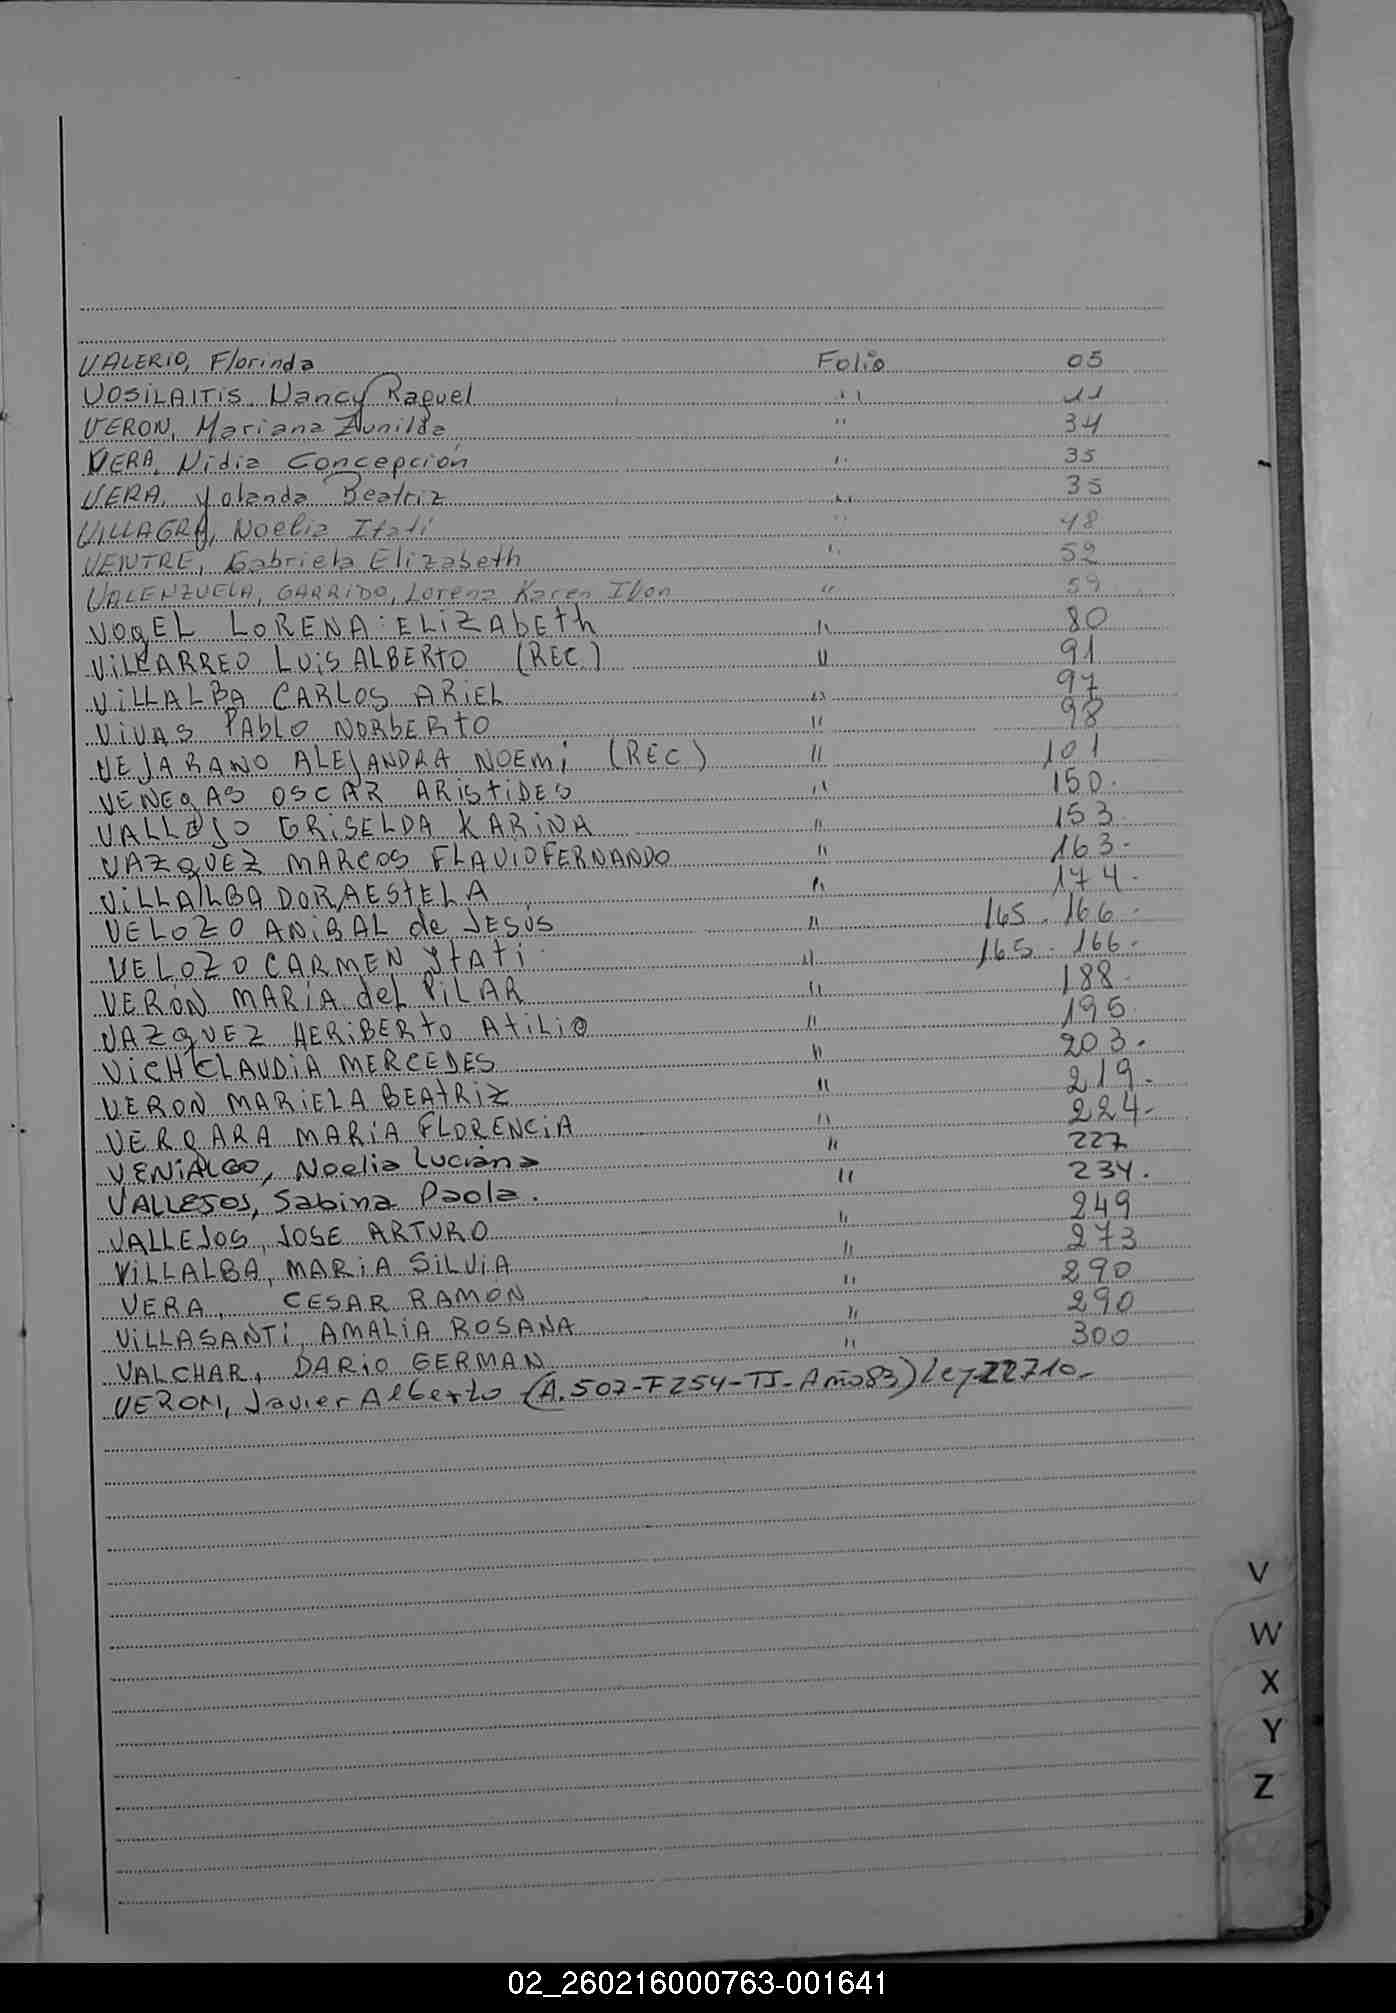 VALERIO, Florinda Folio 05
VOSILAITIS, Nancy Raquel " 11
VERON, Mariana Zunilda " 34
VERA, Nidia Concepción " 35
VERA, Yolanda Beatriz " 35
VILLAGRA, Noelia Itatí " 48
VENTRE, Gabriela Elizabeth " 52
VALENZUELA, GARRIDO, Lorena Karen Ivon " 59
VOgEL LORENA ELiZAbEth " 80
ViLLARREO LUiS ALBERTO (REC) " 91
ViLLALBA CARLOS ARiEL " 97
ViVAS PAbLO NORbERtO " 98
VEJARANO ALEJANDRA NOEMi (REC) " 101
VENEgAS OSCAR ARiStiDES " 150.
VALLEJO GRiSELDA KARiNA " 153
VAZqUEZ MARCOS FLAVIO FERNANDO " 163.
ViLLALBA DORA EStELA " 174.
VELOZO ANiBAL de JESÚS " 165. 166.
VELOZO CARMEN YtAti " 165. 166.
VERÓN MARÍA del PiLAR " 188.
VAZqUEZ HERiBERto AtiLiO " 195.
ViCH CLAUDiA MERCEDES " 203.
VERÓN MARiELA BEAtRiz " 219.
VERgARA MARÍA FLORENCiA " 224.
VENIALGO, Noelia Luciana " 227
VALLEJOS, Sabina Paola. " 234.
VALLEJOS, JOSE ARTURO " 249
ViLLALBA, MARiA SiLViA " 273
VERA, CESAR RAMON " 290
ViLLASANTi, AMALiA ROSANA " 290
VALCHAR, DARiO GERMAN " 300
VERON, Javier Alberto (A.507-F254-TI-Año83) Ley 22710.-
V
W
X
Y
Z
02_260216000763-001641